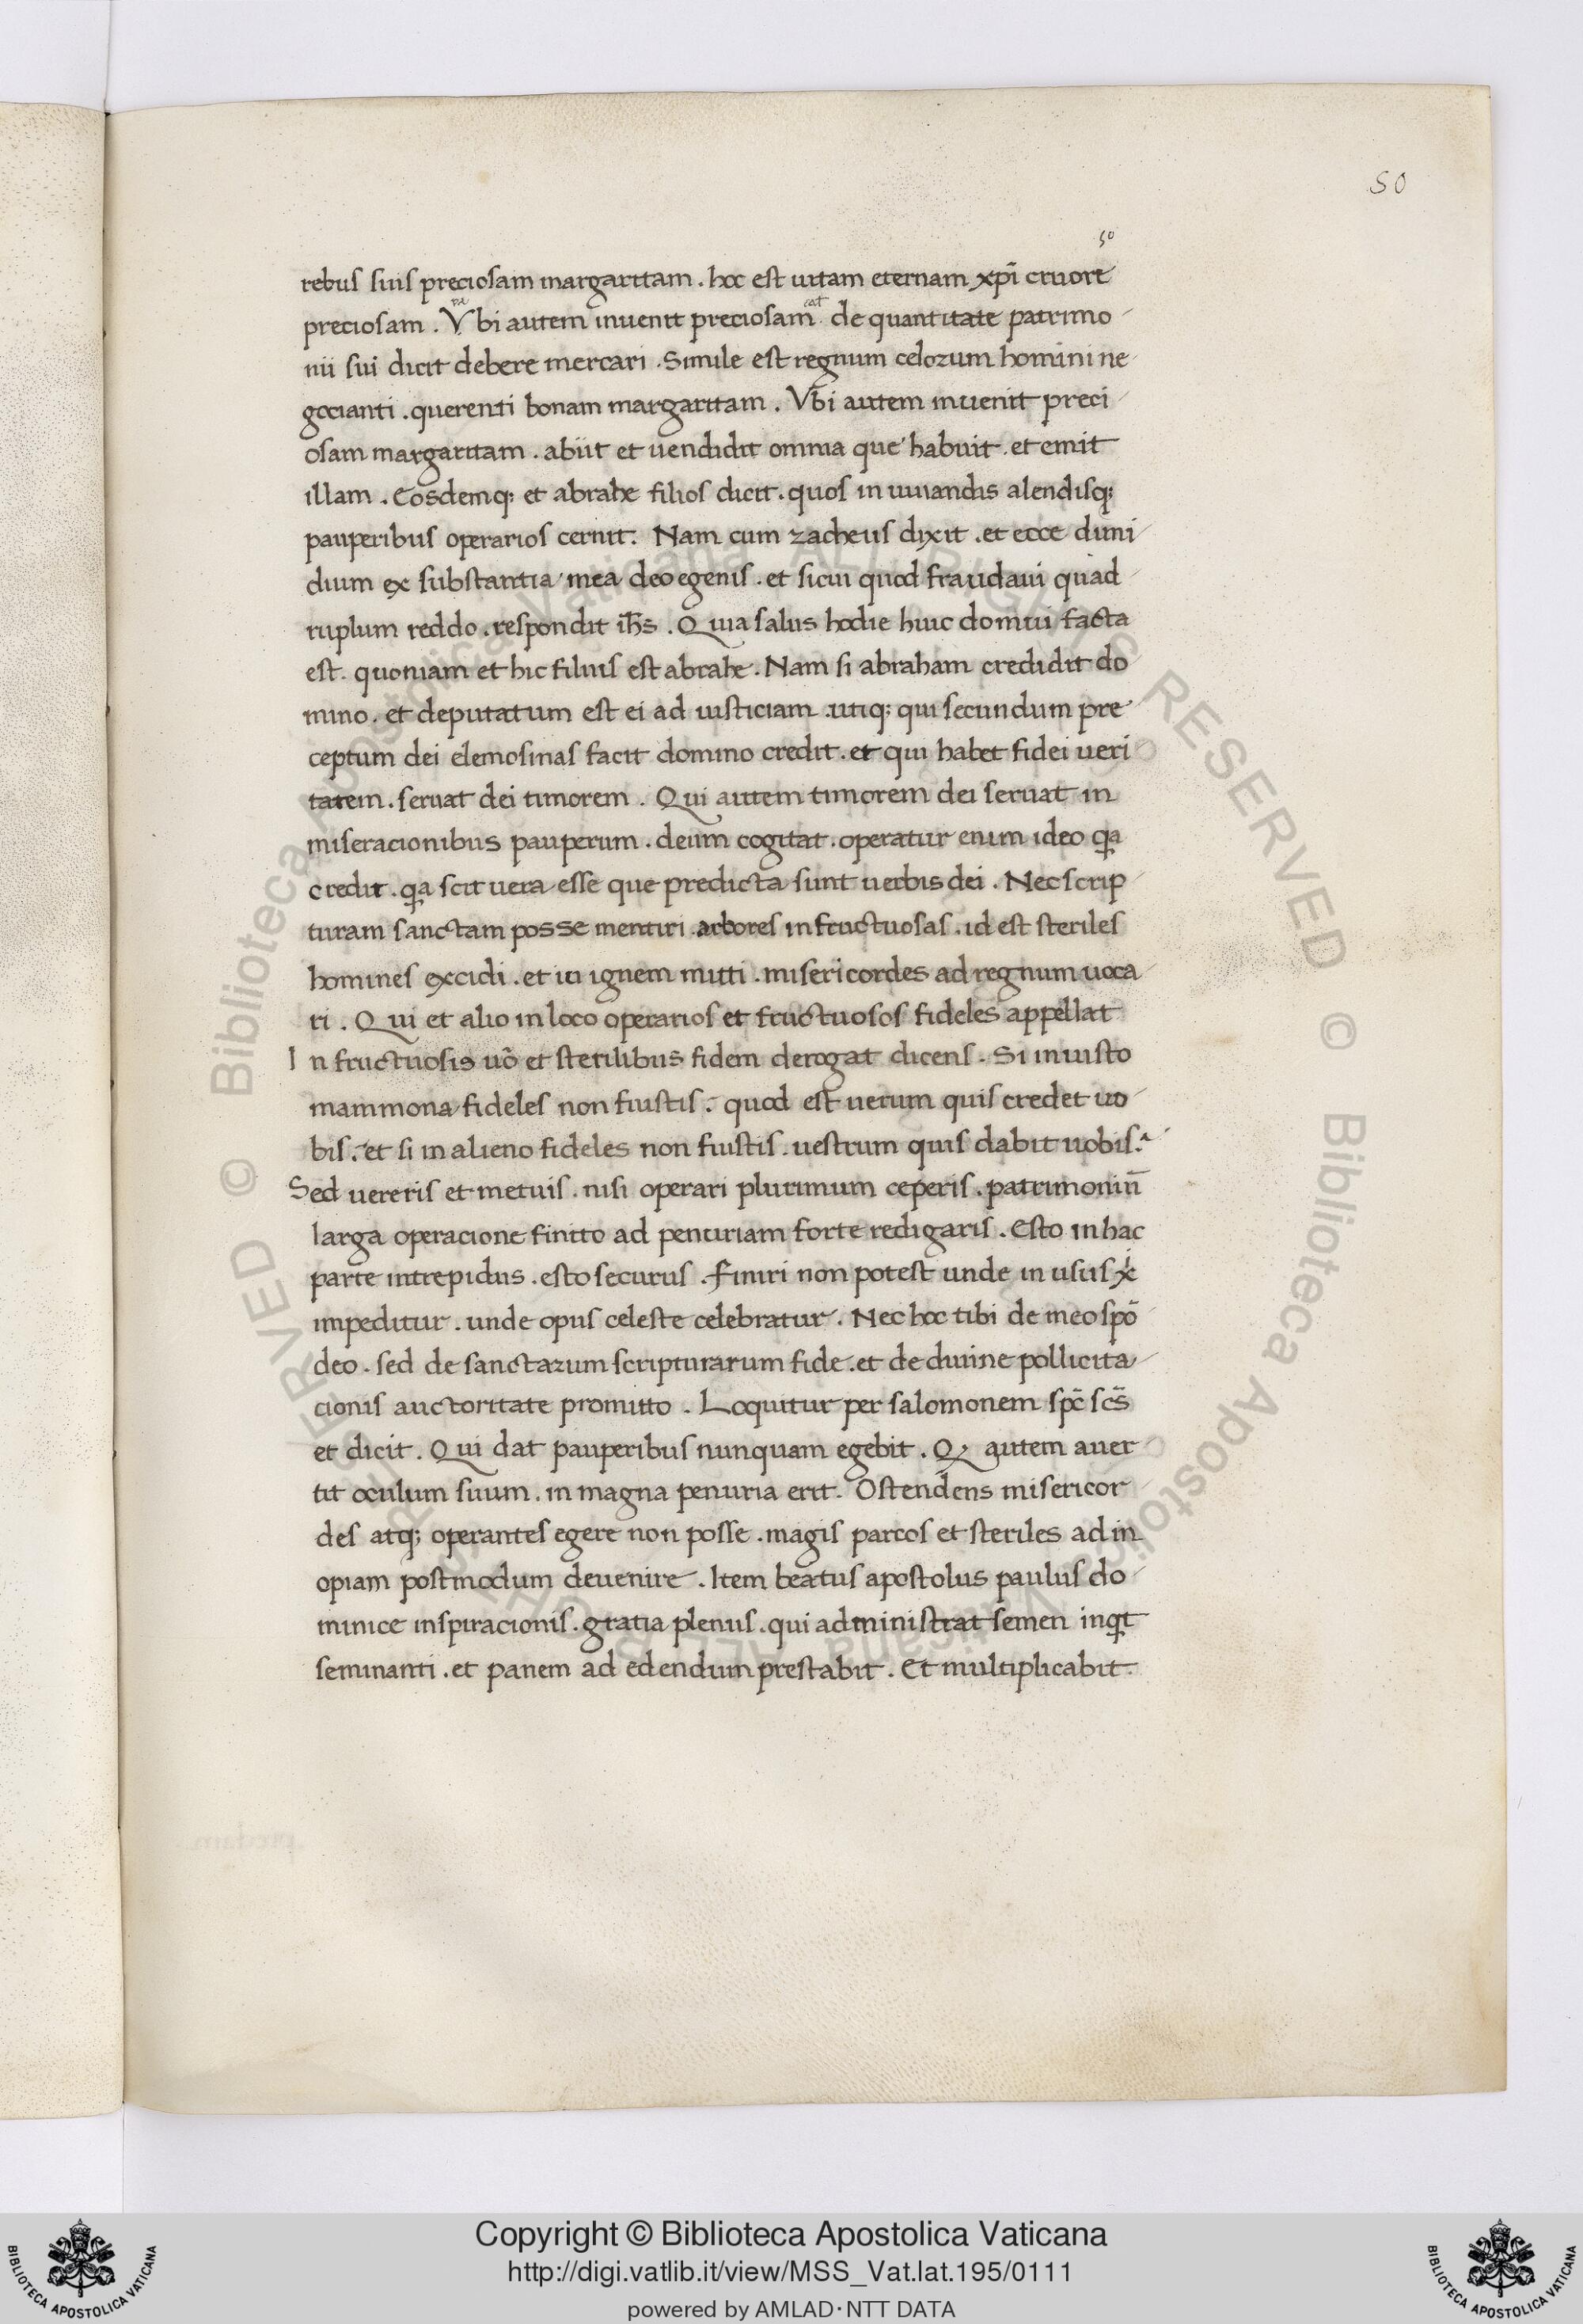 50
50
rebus suis preciosam margaritam . hoc est uitam eternam xpī cruore
preciosam . Vbi autem inuenit preciosam de quantitate patrimo
nii sui dicit debere mercari . Simile est regnum celorum homini ne
gocianti . querenti bonam margaritam . Vbi autem inuenit preci
osam margaritam . abiit et uendidit omnia que habuit . et emit
illam . Eosdemq; et abrahe filios dicit . quos in iuuandis alendisq;
pauperibus operarios cernit . Nam cum zacheus dixit . et ecce dimi
dium ex substantia mea do egenis . et sicui quod fraudaui quad
ruplum reddo . respondit ih̄s . Quia salus hodie huic domui facta
est . quoniam et hic filius est abrahe . Nam si abraham credidit do
mino . et deputatum est ei ad iusticiam . utiq; qui secundum pre
ceptum dei elemosinas facit domino credit . et qui habet fidei ueri
tatem . seruat dei timorem . Qui autem timorem dei seruat in
miseracionibus pauperum . deum cogitat . operatur enim ideo qa
credit . qa scit uera esse que predicta sunt uerbis dei . Nec scrip
turam sanctam posse mentiri . arbores infructuosas . id est steriles
homines excidi . et in ignem mitti . misericordes ad regnum uoca
ri . Qui et alio in loco operarios et fructuosos fideles appellat
In fructuosis uō et sterilibus fidem derogat dicens . Si iniusto
mammona fideles non fuistis . quod est uerum quis credet uo
bis . et si in alieno fideles non fuistis . uestrum quis dabit uobis .
Sed uereris et metuis . nisi operari plurimum ceperis . patrimoniū
larga operacione finito ad penuriam forte redigaris . Esto in hac
parte intrepidus . esto securus . Finiri non potest unde in usus x̍
impeditur . unde opus celeste celebratur . Nec hoc tibi de meo spō
deo . sed de sanctarum scripturarum fide . et de diuine pollicita
cionis auctoritate promitto . Loquitur per salomonem spc̄ scs̄
et dicit . Qui dat pauperibus nunquam egebit . Q autem auer
tit oculum suum . in magna penuria erit . Ostendens misericor
des atq; operantes egere non posse . magis parcos et steriles ad in
opiam postmodum deuenire . Item beatus apostolus paulus do
minice inspiracionis . gratia plenus . qui administrat semen inqt
seminanti . et panem ad edendum prestabit . Et multiplicabit .
Copyright © Biblioteca Apostolica Vaticana
http://digi.vatlib.it/view/MSS_Vat.lat.195/0111
powered by AMLAD·NTT DATA